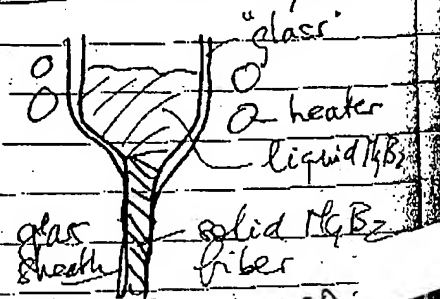 "glass"
heater
liquid MgB2
glass
sheath
solid MgB2
fiber